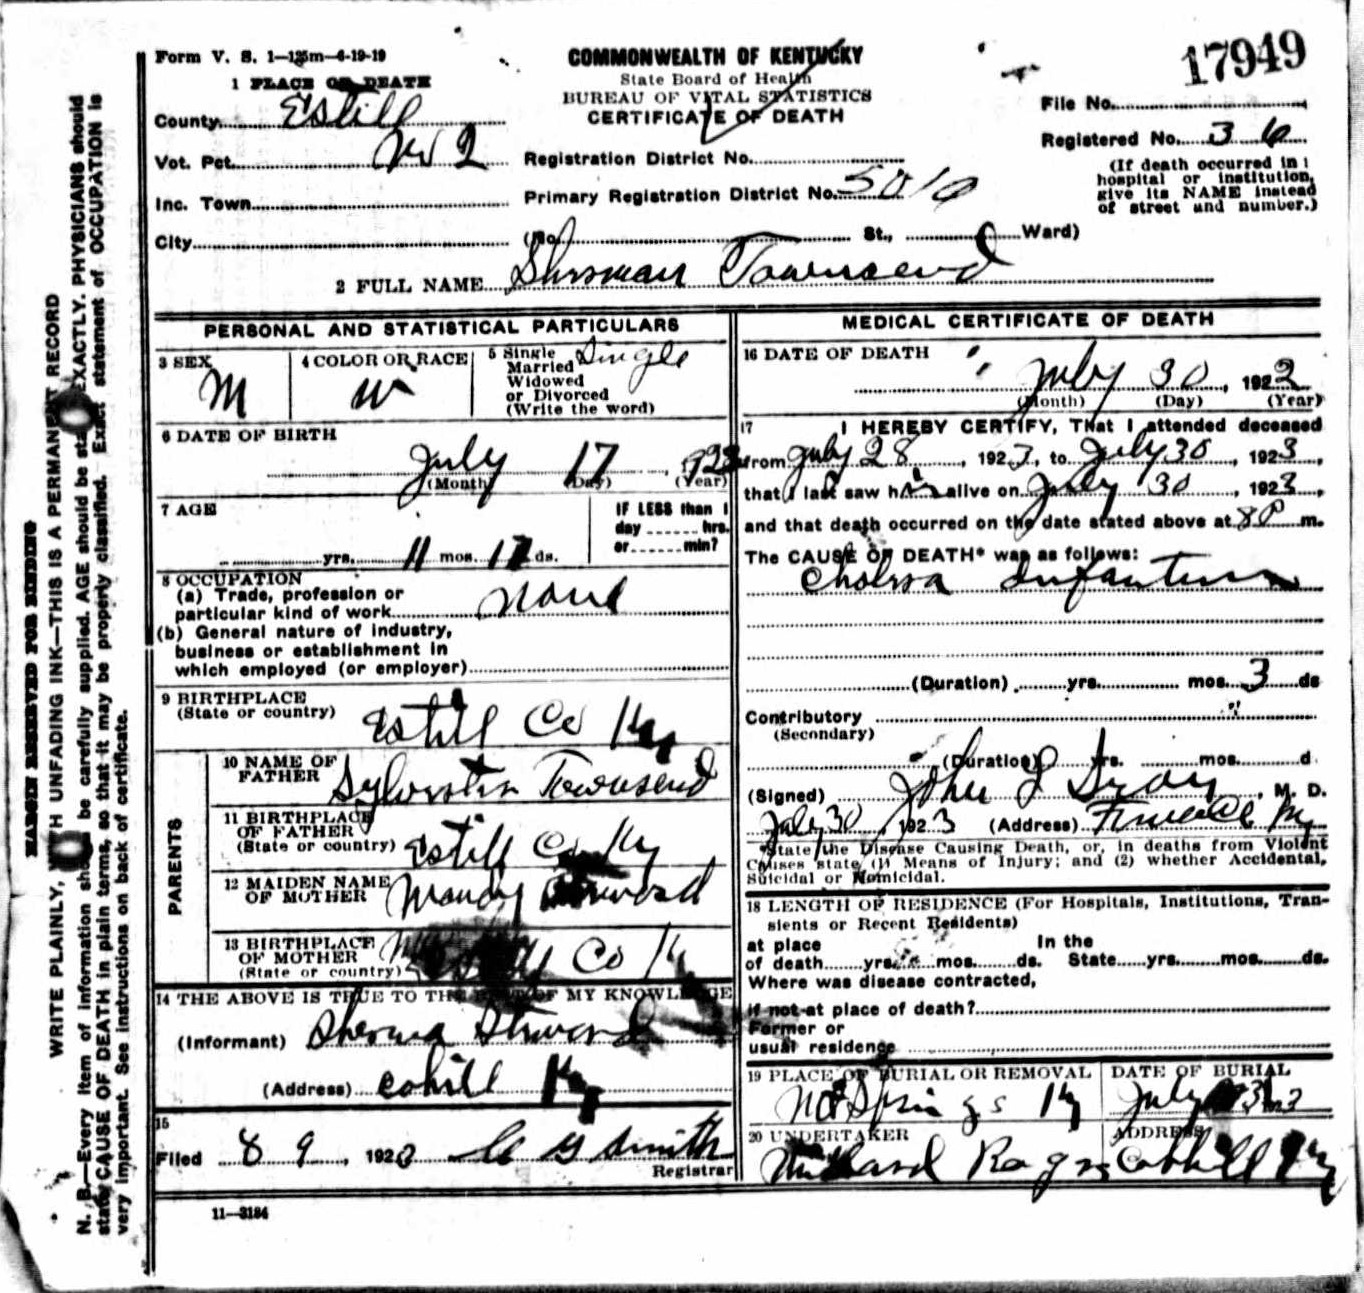 Form V. S. 1—125m—4-19-19
COMMONWEALTH OF KENTUCKY
State Board of Health
BUREAU OF VITAL STATISTICS
CERTIFICATE OF DEATH
17949
File No.
Registered No. 36
(If death occurred in a
hospital or institution,
give its NAME instead
of street and number.)
1 PLACE OF DEATH
County Estill
Vot. Pct. No 2
Registration District No.
Inc. Town
Primary Registration District No. 5010
City (No. St., Ward)
2 FULL NAME Sherman Townsend
PERSONAL AND STATISTICAL PARTICULARS
3 SEX M
4 COLOR OR RACE W
5 Single
Married
Widowed
or Divorced
(Write the word) Single
6 DATE OF BIRTH
July 17, 1923
(Month) (Day) (Year)
7 AGE
yrs. 11 mos. 17 ds.
IF LESS than 1
day hrs.
or min?
8 OCCUPATION
(a) Trade, profession or
particular kind of work None
(b) General nature of industry,
business or establishment in
which employed (or employer)
9 BIRTHPLACE
(State or country) Estill Co Ky
PARENTS
10 NAME OF
FATHER Sylvester Townsend
11 BIRTHPLACE
OF FATHER
(State or country) Estill Co Ky
12 MAIDEN NAME
OF MOTHER Mandy
13 BIRTHPLACE
OF MOTHER
(State or country) Co Ky
14 THE ABOVE IS TRUE TO THE BEST OF MY KNOWLEDGE
(Informant) Sherman
(Address) Ky
15
Filed 8 9, 1923 C G Smith
Registrar
11—3184
MEDICAL CERTIFICATE OF DEATH
16 DATE OF DEATH
July 30, 1922
(Month) (Day) (Year)
17 I HEREBY CERTIFY, That I attended deceased
from July 28, 1923, to July 30, 1923,
that I last saw him alive on July 30, 1923,
and that death occurred on the date stated above at 8 P m.
The CAUSE OF DEATH* was as follows:
Cholera Infantum
(Duration) yrs. mos. 3 ds
Contributory
(Secondary)
(Duration) yrs. mos. d
(Signed) John M. D.
July 30, 1923 (Address) Furnace Ky
*State the Disease Causing Death, or, in deaths from Violent
Causes state (1) Means of Injury; and (2) whether Accidental,
Suicidal or Homicidal.
18 LENGTH OF RESIDENCE (For Hospitals, Institutions, Tran-
sients or Recent Residents)
at place In the
of death yrs. mos. ds. State yrs. mos. ds.
Where was disease contracted,
if not at place of death?
Former or
usual residence
19 PLACE OF BURIAL OR REMOVAL DATE OF BURIAL
Springs Ky July 31
20 UNDERTAKER ADDRESS
Ky
MARGIN RESERVED FOR BINDING
WRITE PLAINLY, WITH UNFADING INK—THIS IS A PERMANENT RECORD
N. B.—Every item of information should be carefully supplied. AGE should be stated EXACTLY. PHYSICIANS should
state CAUSE OF DEATH in plain terms, so that it may be properly classified. Exact statement of OCCUPATION is
very important. See instructions on back of certificate.